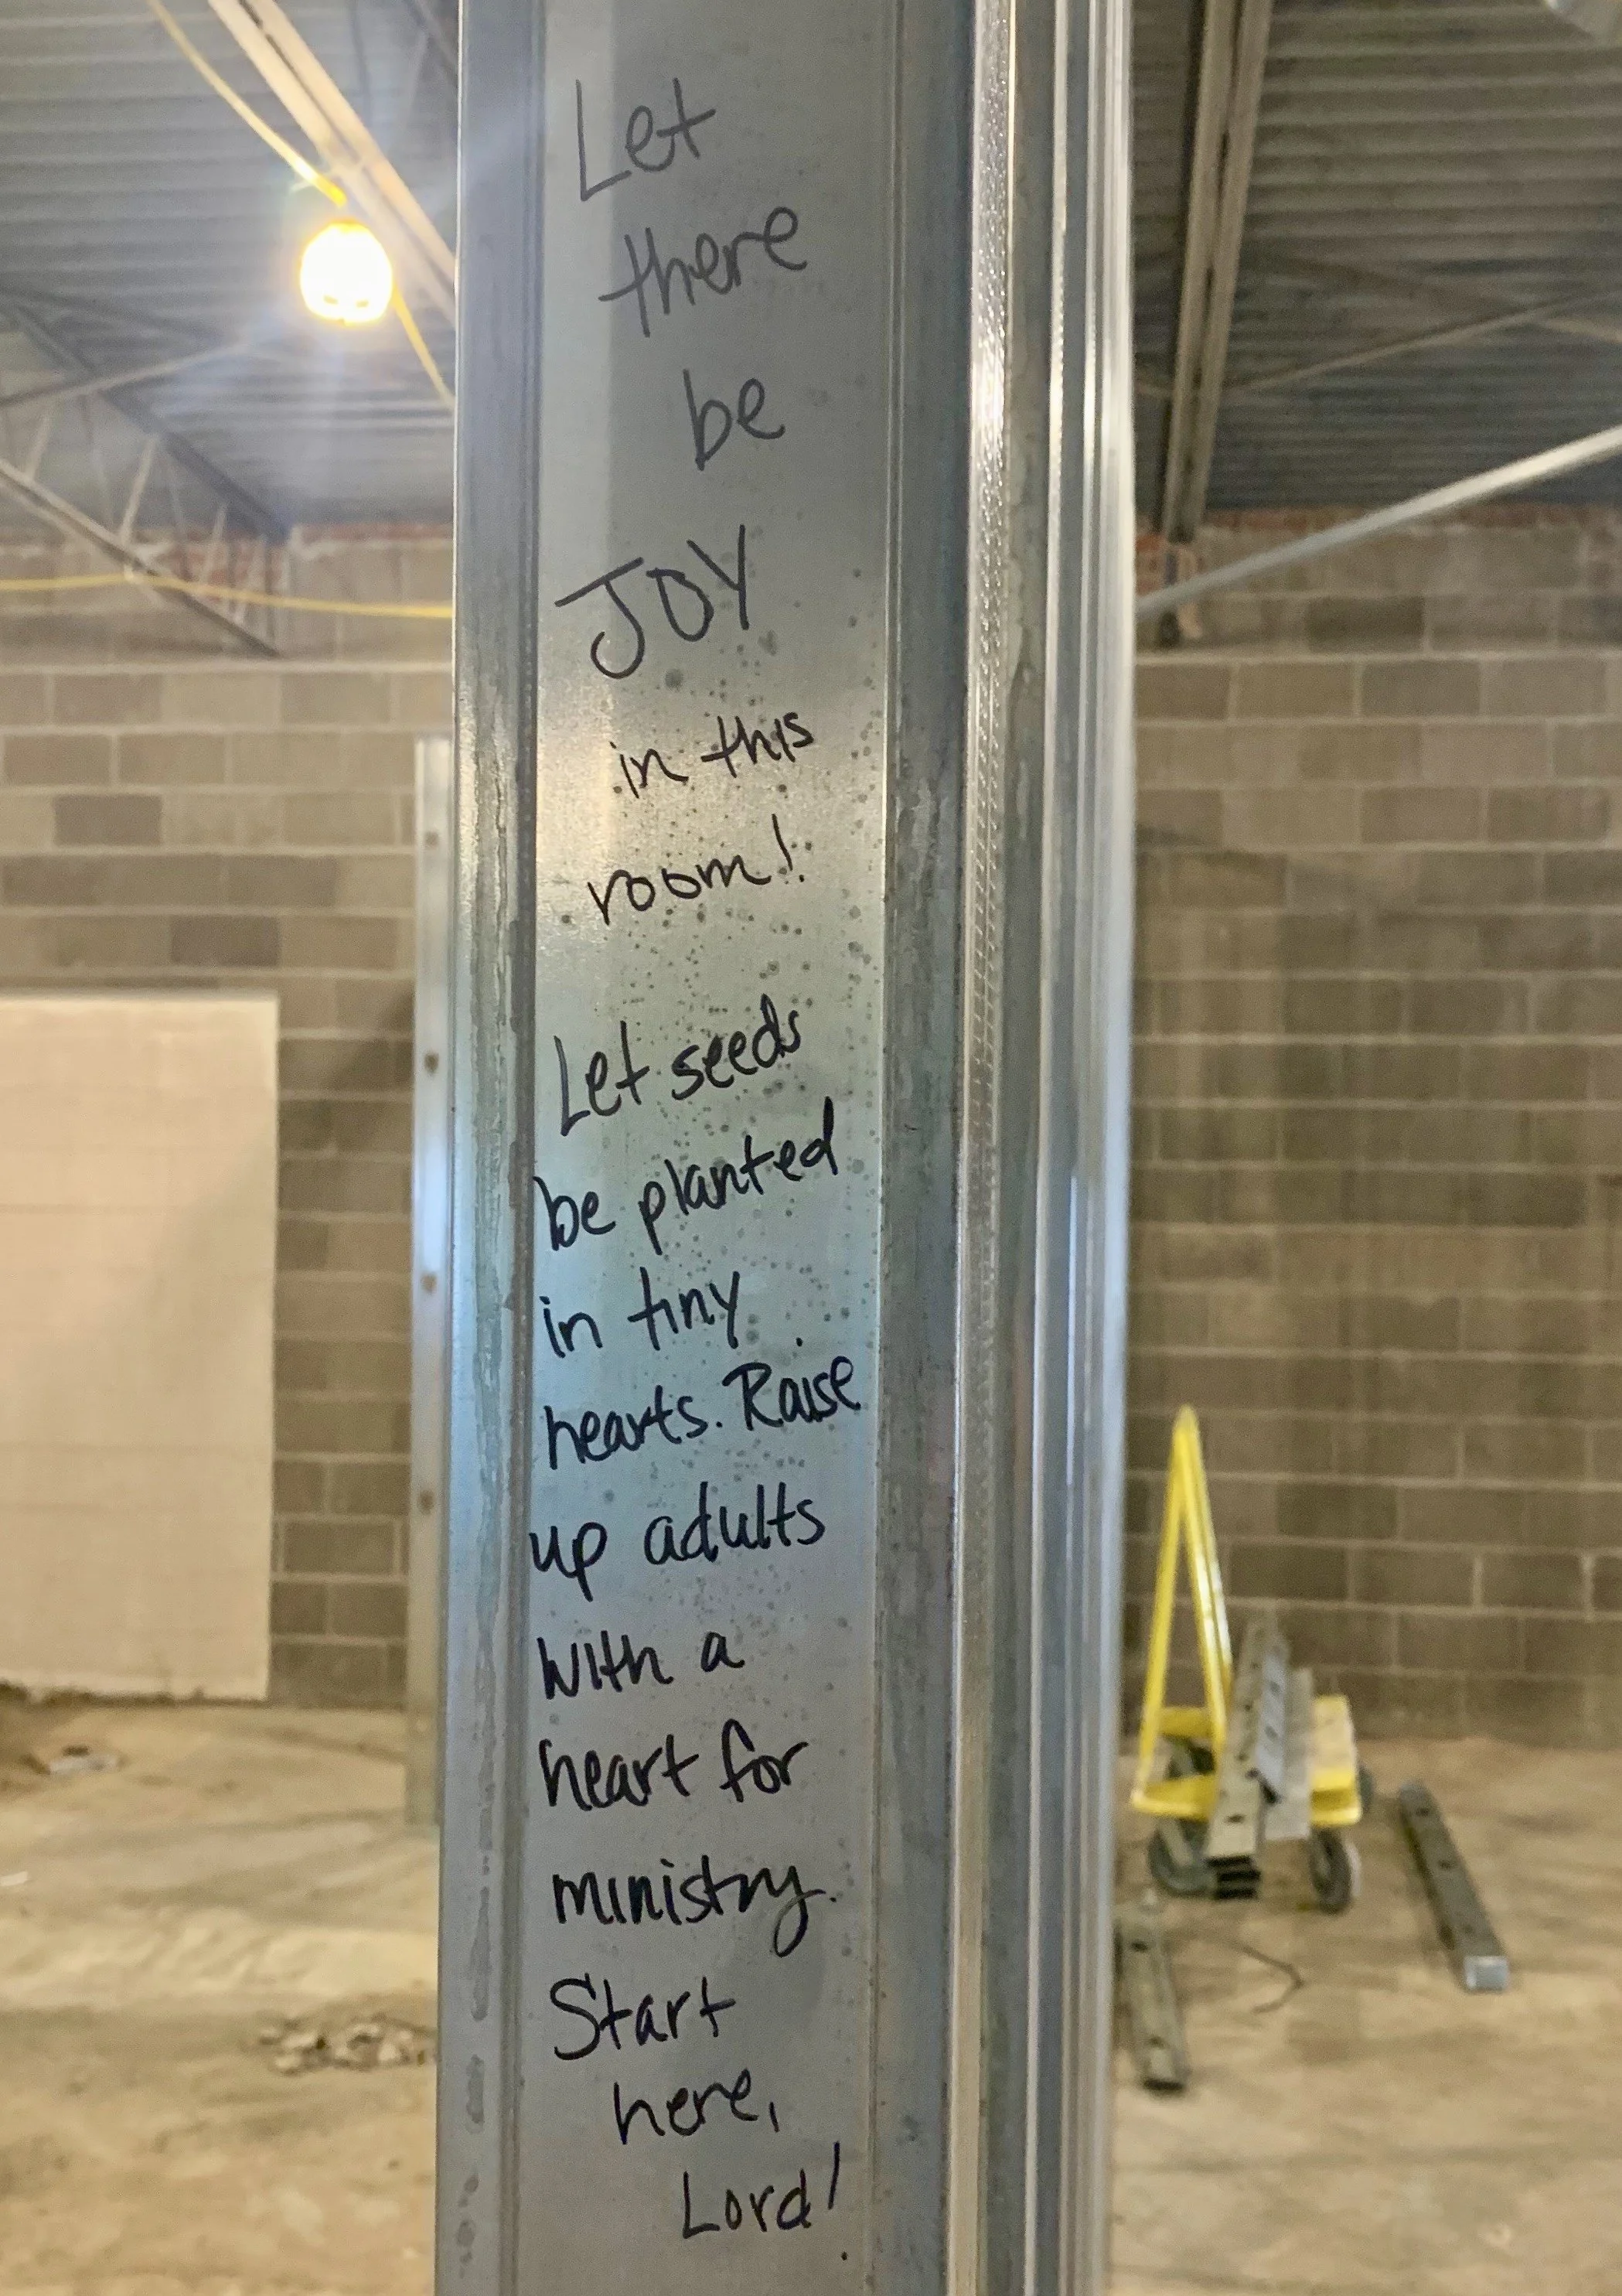 Let
there
be
JOY
in this
room!
Let seeds
be planted
in tiny
hearts. Raise
up adults
with a
heart for
ministry.
Start
here,
Lord!